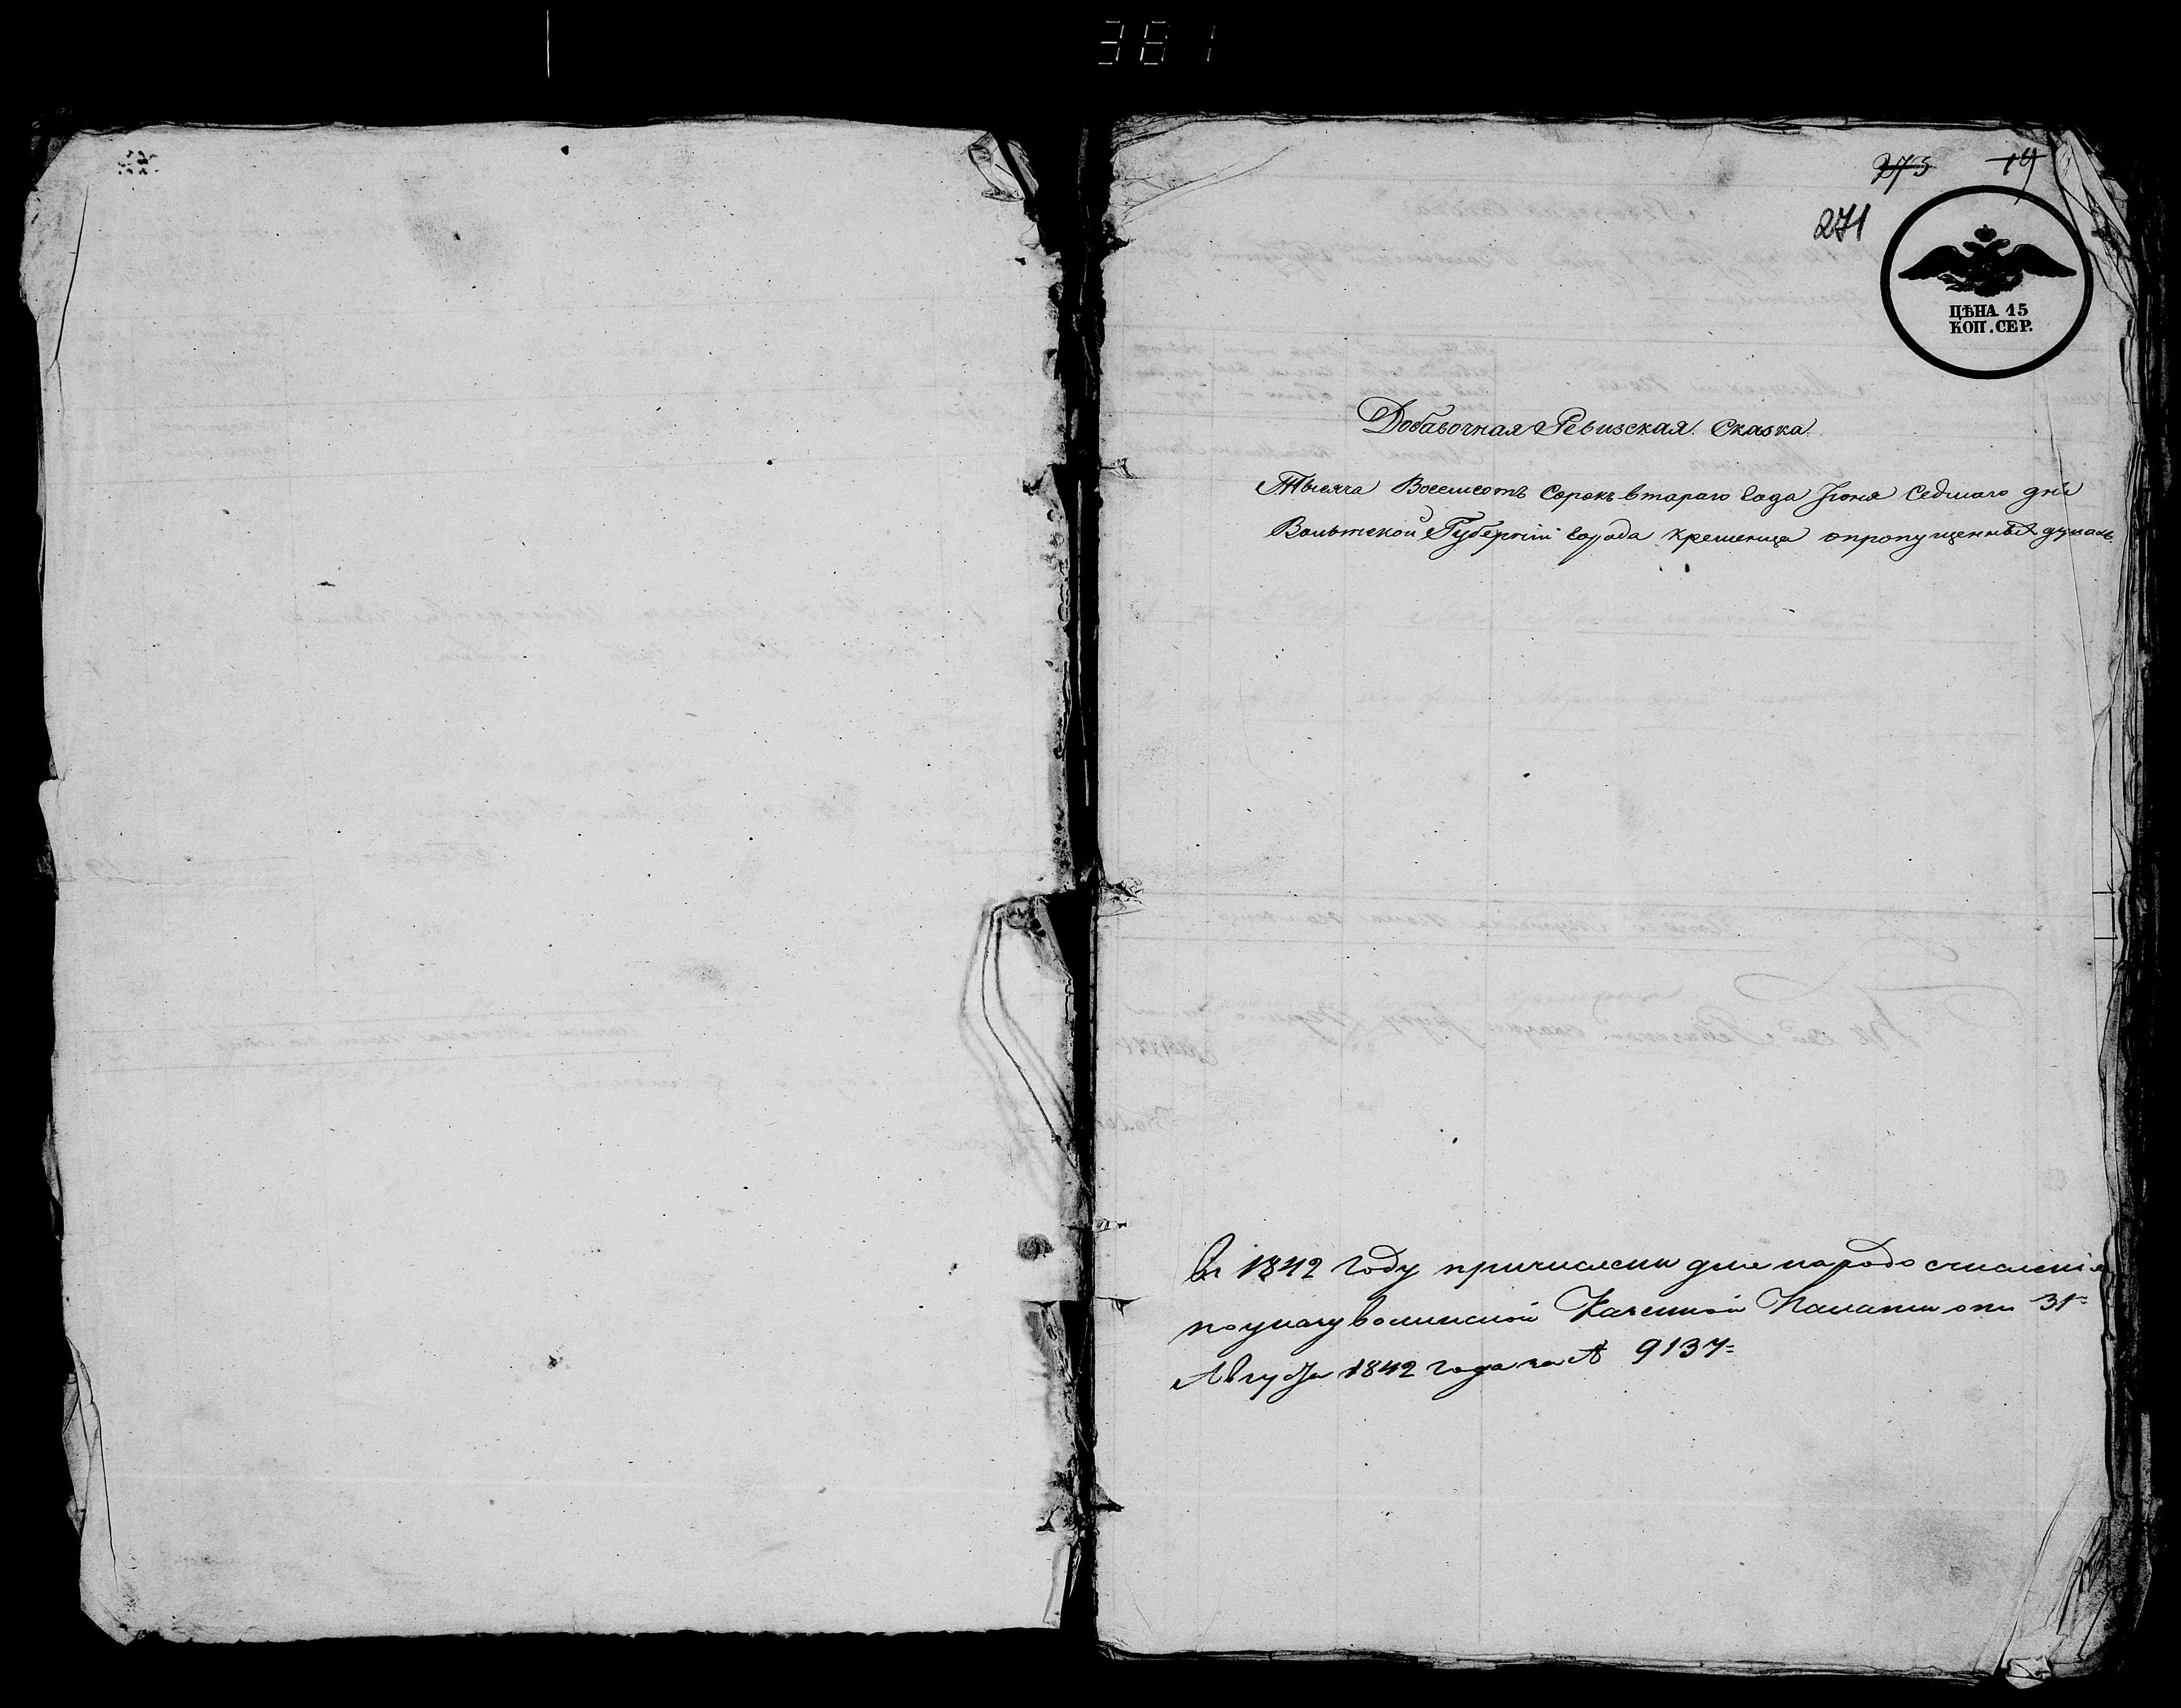 381
273 19
271
ЦѢНА 15
КОП. СЕР.
Добавочная Ревизская Сказка
Тысяча Восемсотъ Сорокъ втараго Года Іюня Седмаго дня
Волынской Губерніи города Кременца опропущенныхъ душахъ
въ 1842 году причислены для народосчисленія
по указу волынской Казенной Палаты отъ 31
Августа 1842 года за № 9137